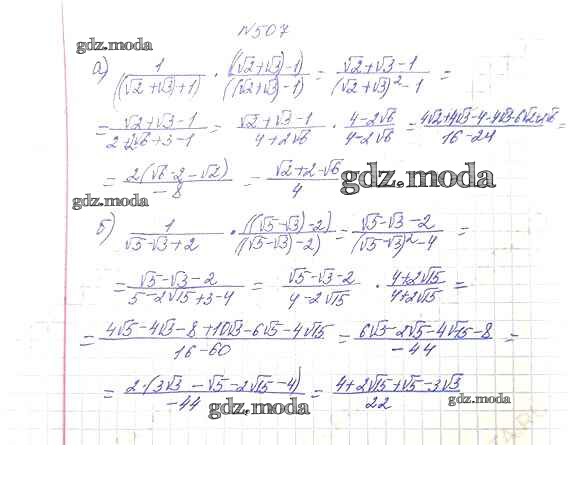 №507
gdz.moda
а) 1/((√2+√3)+1) · ((√2+√3)-1)/((√2+√3)-1) = (√2+√3-1)/((√2+√3)²-1) =
= (√2+√3-1)/(2+2√6+3-1) = (√2+√3-1)/(4+2√6) · (4-2√6)/(4-2√6) = /(16-24) =
= 2(√6-2-√2)/(-8) = (√2+2-√6)/4
gdz.moda
gdz.moda
б) 1/(√5-√3+2) · ((√5-√3)-2)/((√5-√3)-2) = (√5-√3-2)/((√5-√3)²-4) =
= (√5-√3-2)/(5-2√15+3-4) = (√5-√3-2)/(4-2√15) · (4+2√15)/(4+2√15) =
= (4√5-4√3-8+10√3-6√5-4√15)/(16-60) = (6√3-2√5-4√15-8)/(-44) =
= 2·(3√3-√5-2√15-4)/(-44) = (4+2√15+√5-3√3)/22
gdz.moda
gdz.moda